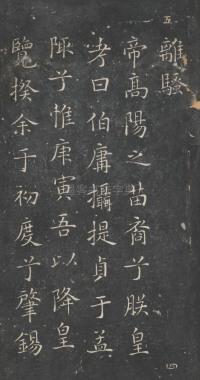 五
離騷
帝高陽之苗裔兮朕皇
考曰伯庸攝提貞于孟
陬兮惟庚寅吾以降皇
覽揆余于初度兮肇錫
四